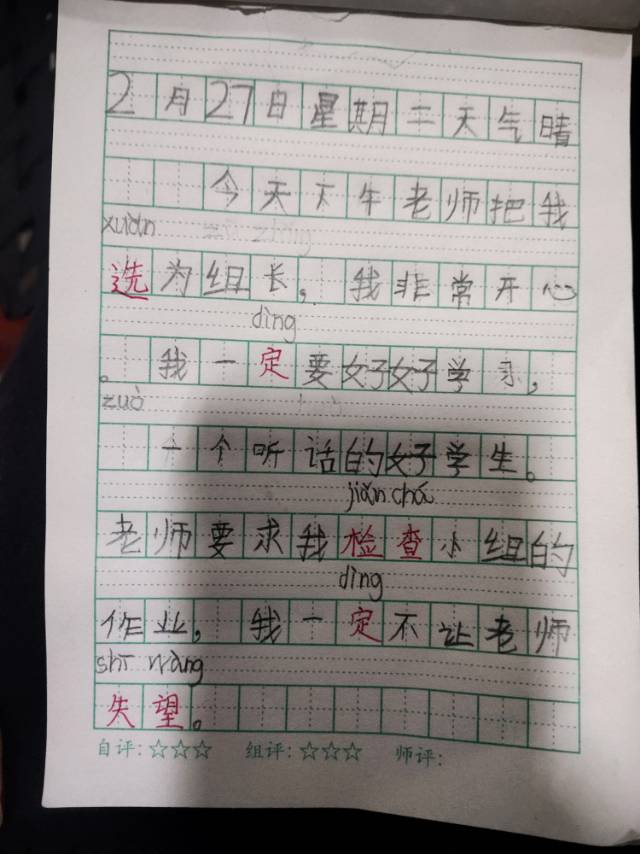 2月27日星期二天气晴
今天下午老师把我
xuǎn
选为组长，我非常开心
dìng
。我一定要好好学习，
zuò
一个听话的好学生。
jiǎn chá
老师要求我检查小组的
dìng
作业，我一定不让老师
shī wàng
失望。
自评：☆☆☆ 组评：☆☆☆ 师评：